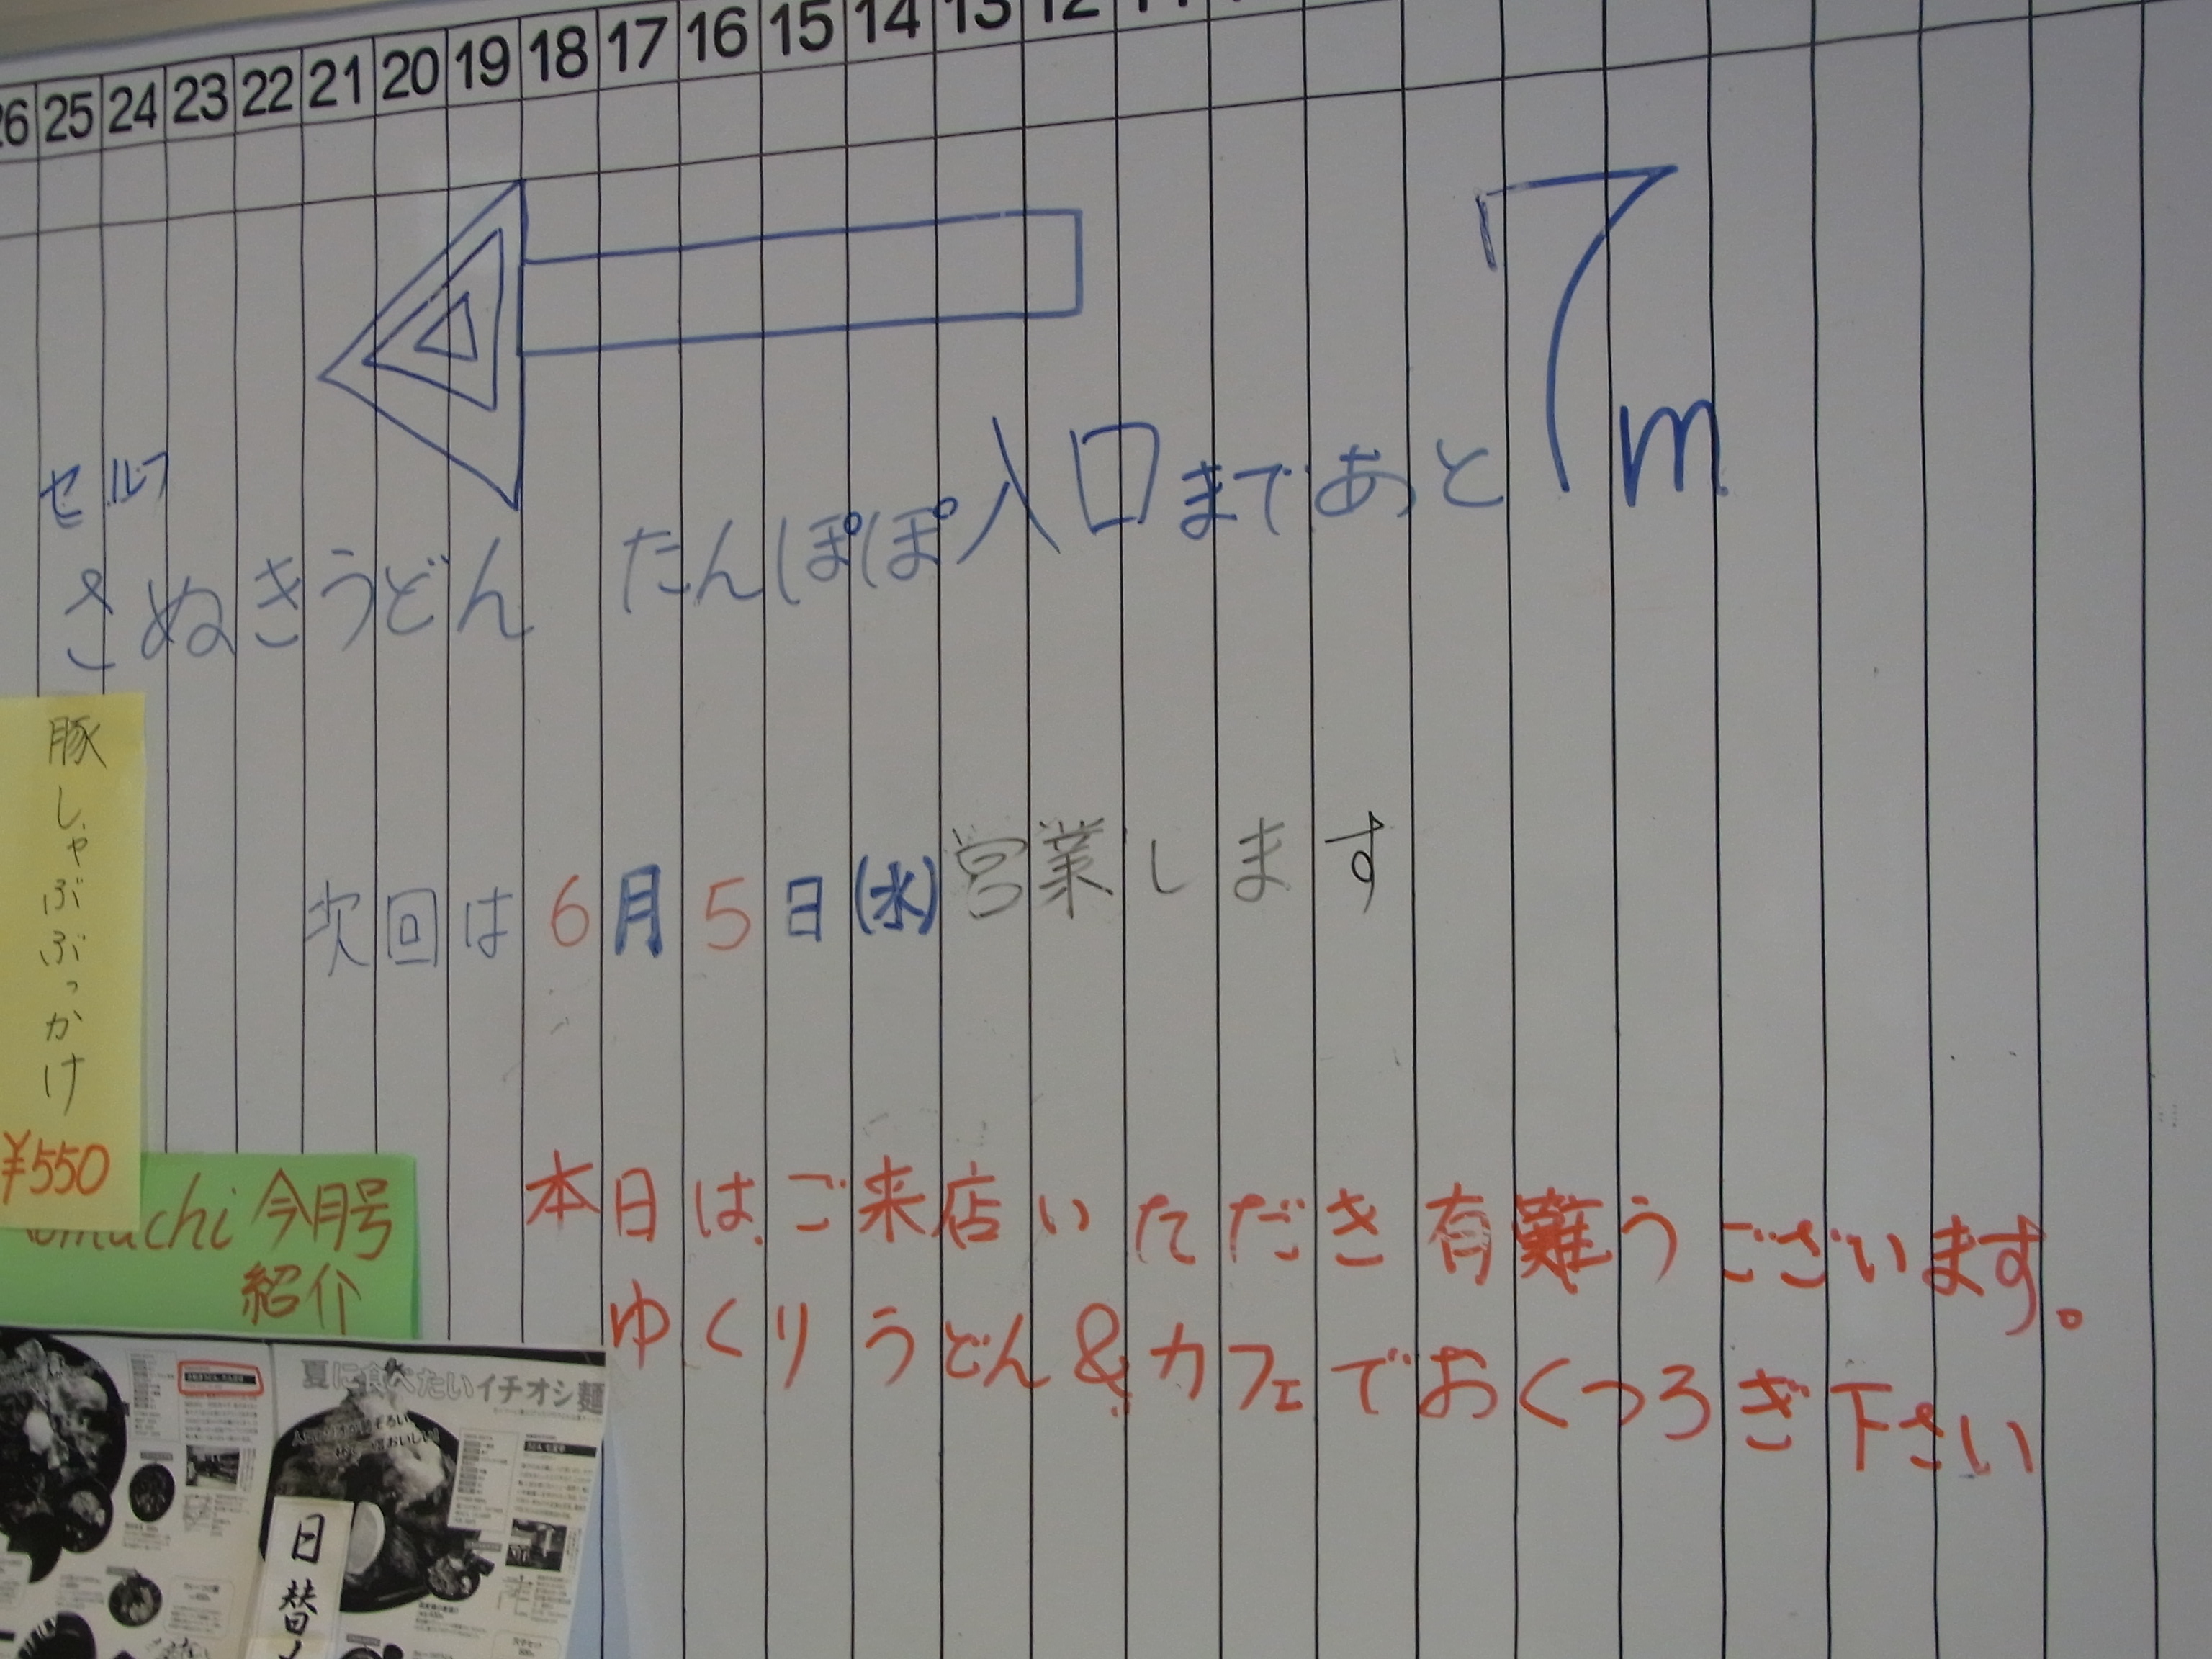 26 25 24 23 22 21 20 19 18 17 16 15 14 13 12
7m
セルフ
さぬきうどん たんぽぽ入口まであと
次回は6月5日(水)営業します
豚しゃぶぶっかけ
¥550
今月号
紹介
本日はご来店いただき有難うございます。
ゆくりうどん&カフェでおくつろぎ下さい
夏に食べたいイチオシ麺
日替